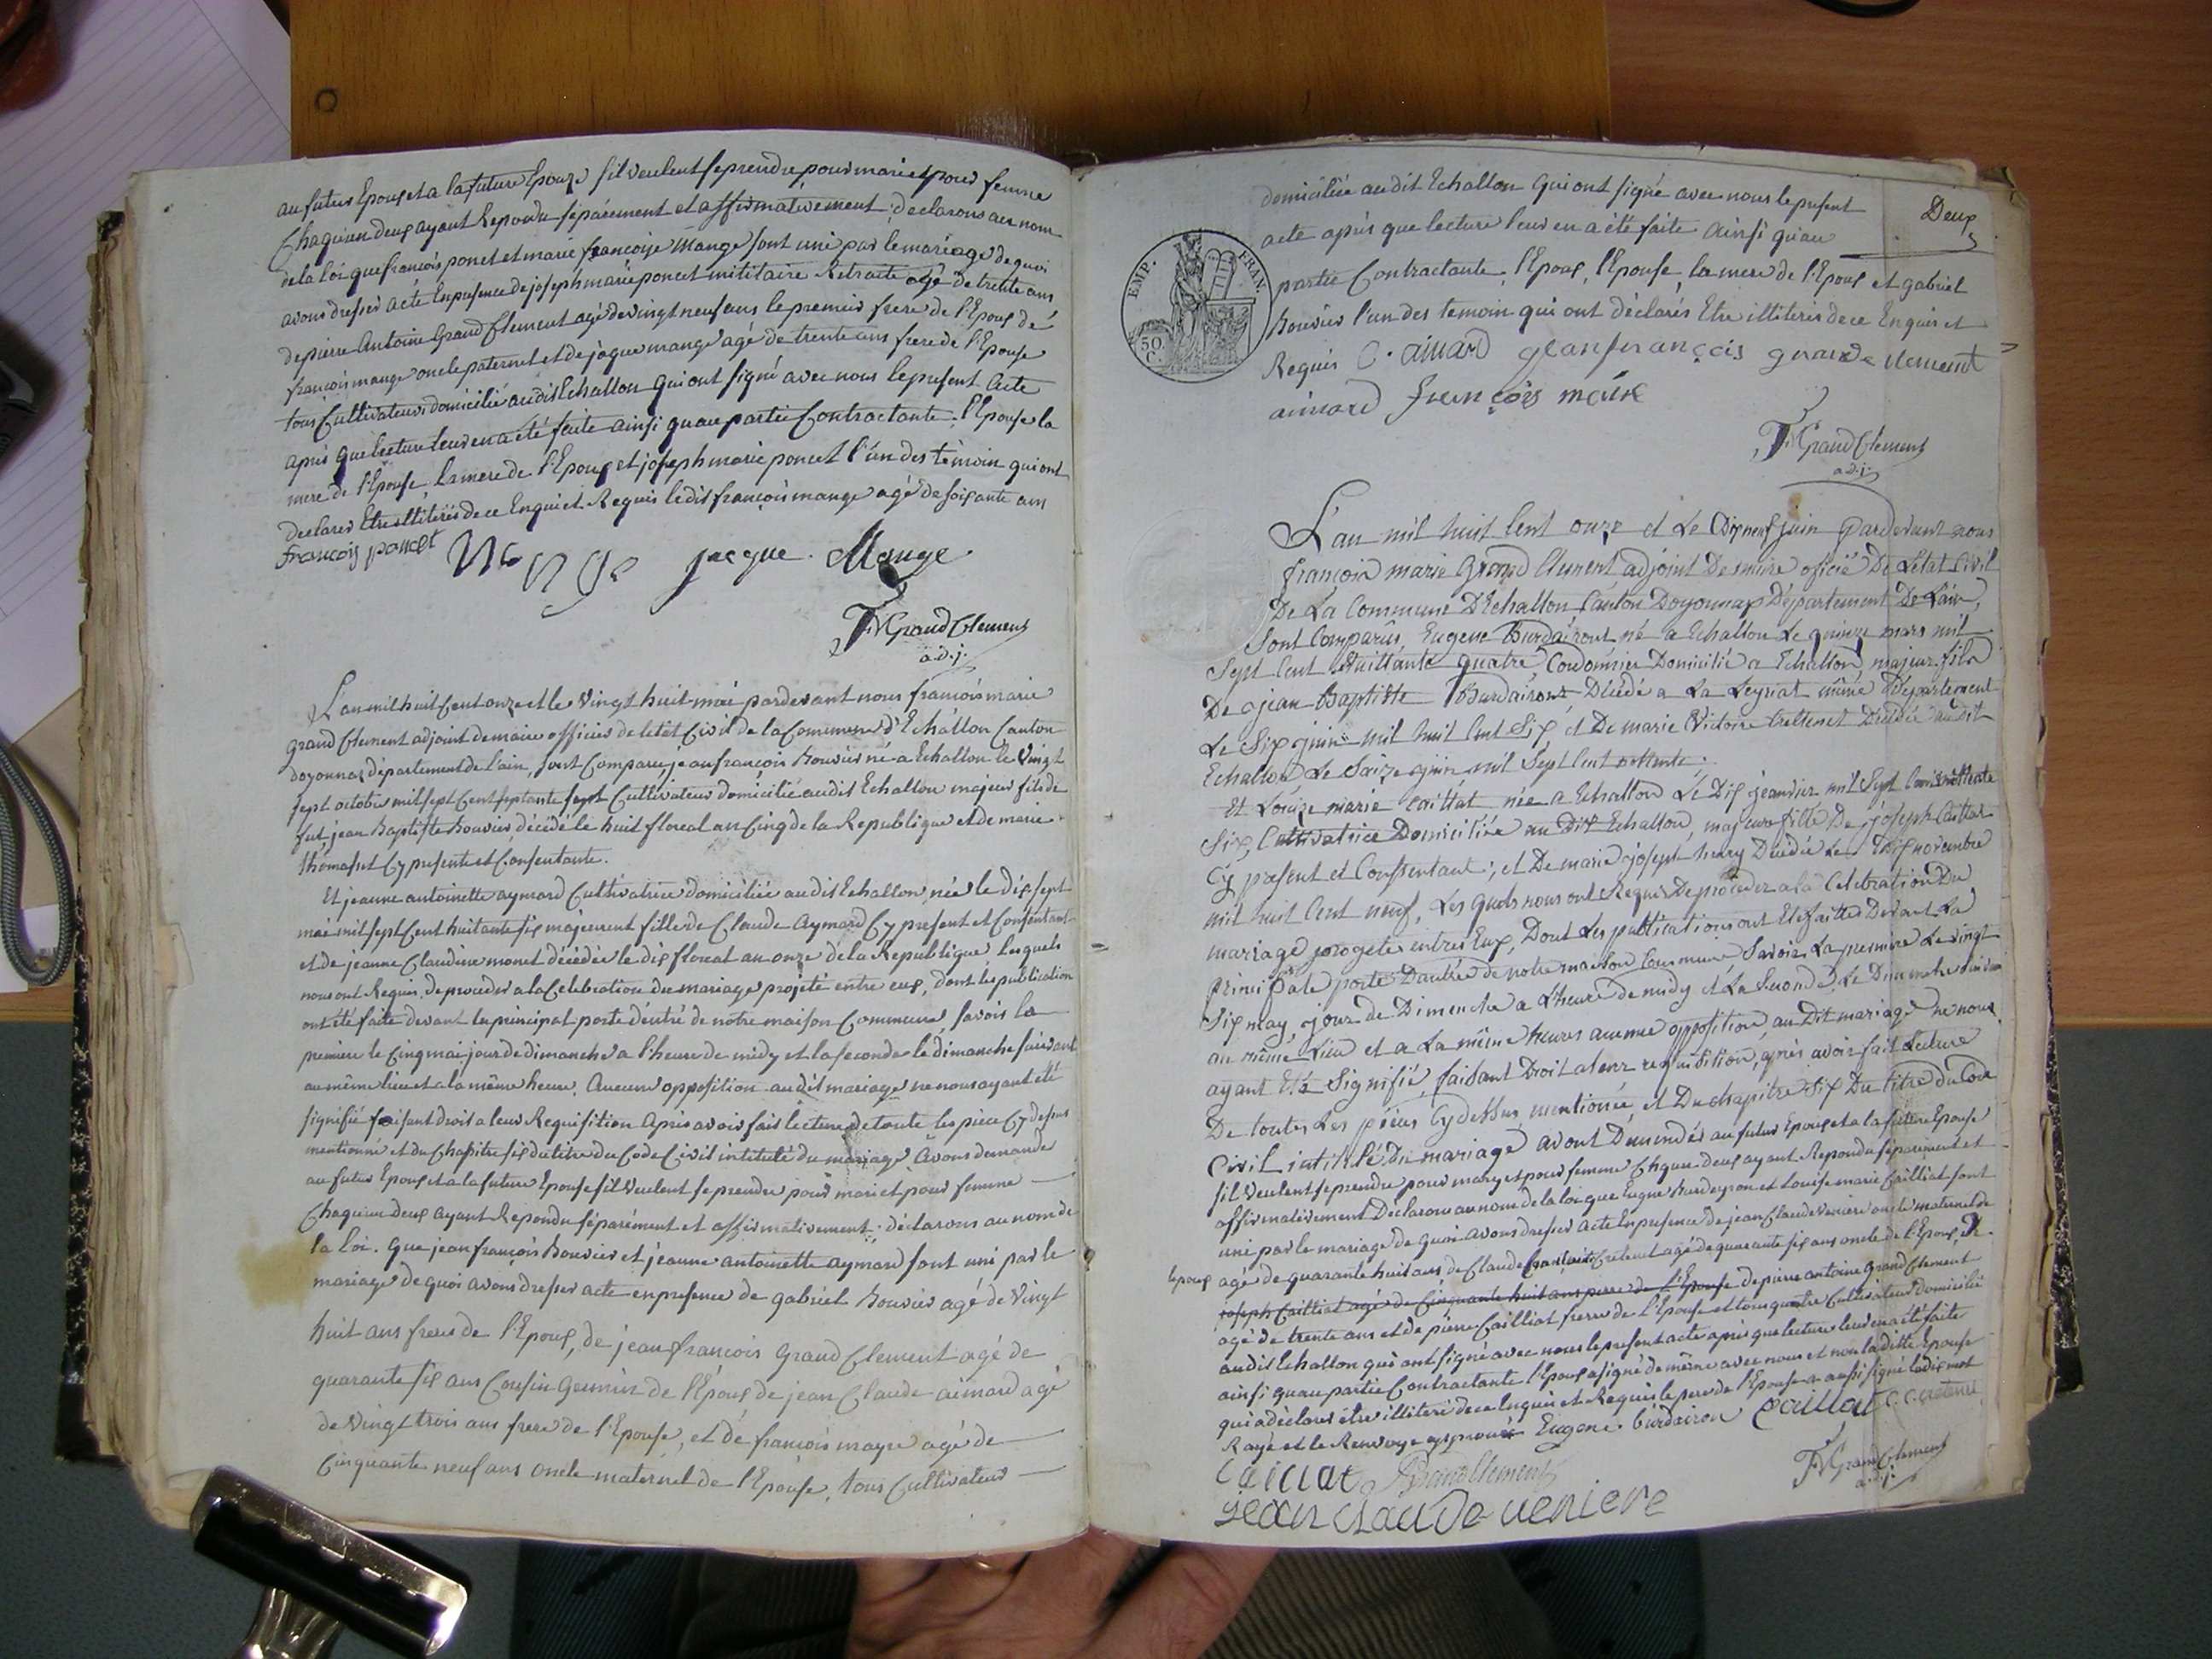 au futur Epoux et a la future Epouze sil veulent se prendre pour mari et pour femme
Chaqu'un deux ayant Repondu séparément et affirmativement : declarons au nom
de la loi que françois poncet et marie françoise Mange sont uni par le mariage de quoi
avons dressé acte En presence de joseph marie poncet militaire Retraite agé de trente ans
de pierre Antoine Grand Clement agé de vingt neuf ans le premier frere de l'Epoux de
françois mange oncle paternel et de jaque mange agé de trente ans frere de l'Epouse
tous Cultivateurs domicilié audit Echallon qui ont signé avec nous le present Acte
après que lecture leur en a été faite ainsi qu'au partie Contractante. l'Epouse la
mere de l'Epouse, la mere de l'Epoux et joseph marie poncet l'un des témoin qui ont
declarer Etre illiterés de ce Enquis et Requis ledit françois mange agé de soixante ans
françois poncet Mange jacque Mange
FMGrandClement
adj.
L'an mil huit Cent onze et le vingt huit mai pardevant nous françois marie
Grand Clement adjoint de maire officier de letât Civil de la Commune d'Echallon Canton
doyonnax département de l'ain, sont Comparu, jean françois Bouvier né a Echallon le vingt
sept octobre mil sept Cent septante sept Cultivateur domicilié audit Echallon majeur fils de
fut, jean Baptiste Bouvier décédé le huit floreal an Cinq de la Republique et de marie
thomasset Cy presente et Consentante.
Et jeanne antoinette aymard Cultivatrice domiciliée audit Echallon, née le dix sept
mai mil sept Cent huitante six majeurent fille de Claude Aymard Cy present et Consentant
et de jeanne Claudine monet décédée le dix floreal an onze de la Republique, lesquels
nous ont Requis de proceder a la Celebration du mariage projeté entre eux, dont les publication
ont été faite devant la principal porte d'entré de notre maison Commune savoir la
premiere le Cinq mai jour de dimanche a l'heure de midy et la seconde le dimanche suivant
au même lieu et a la même heure. Aucune opposition audit mariage ne nous ayant été
signifié faisant droit a leur Requisition Après avoir fait lecture de toute les piece Cy dessus
mentionné et du Chapitre six du titre du Code Civil intitulé du mariage, avons demandé
au futur Epoux et a la future Epouse sil veulent se prendre pour mari et pour femme
Chaqu'un deux ayant Repondu séparément et affirmativement : déclarons au nom de
la loi. que jean françois Bouvier et jeanne antoinette aymard sont uni par le
mariage de quoi avons dresser acte en presence de gabriel Bouvier agé de vingt
huit ans frere de l'Epoux, de jean françois Grand Clement agé de
quarante six ans Cousin Germin de l'Époux de jean Claude aimard agé
de vingt trois ans frere de l'Epouse, et de françois mayre agé de
Cinquante neuf ans oncle maternel de l'Epouse, tous Cultivateur
Deux
domiciliée audit Echallon qui ont signé avec nous le present
acte après que lecture leur en a été faite ainsi qu'au
EMP. FRAN.
50 C.
partie Contractante, l'Epoux, l'Epouse, la mere de l'Epoux et gabriel
Bouvier l'un des temoin qui ont déclarés Etre illiterés de ce Enquis et
Requis C. aimard jeanfrançois grandclement
aimard françois maire
FMGrandClement
adj.
L'an mil huit Cent onze et Le Dix neuf juin pardevant nous
françois marie Grand Clement adjoint De maire oficié De Létat Civil
De La Commune D'Echallon Canton Doyonnax Département De Lain,
Sont Comparûs, Eugene Burdairont né a Echallon Le quinze mars mil
Sept Cent Huittante quatre Cordonnier Domicilié a Echallon, majeur fils
De jean Baptiste Burdairont Décédé a La Leyriat même Département
Le Six juin mil huit Cent Six et De marie Victoire Crettenet Décédée audit
Echallon Le Saize juin mil Sept Cent nottente.
Et Louize marie Caillat née a Echallon Le Dix jeanvier mil Sept Cent huittente
Six, Cultivatrice Domiciliée au Dit Echallon, majeure fille De joseph Caillat
Cy present et Consentant ; et De marie joseph henry Décédée Le Dix novembre
mil huit Cent neuf, Les quels nous ont Requis De proceder a la Celebration Du
mariage progetés entres Eux, Dont Les publications ont Eté faittes Devant La
principale porte D'antrée de notre maison Commune Savoir La premiere Le vingt
Six may jour de Dimenche a L'heure de midy et La Seconde Le Dimenche suivan
au même Lieu et a La même heures aucune opposition au Dit mariage ne nous
ayant Eté Signifié, faisant Droit a leur requisition, après avoir fait Lecture
De toutes Les pièces Cy dessus mentionée, et Du chapitre Six Du titre du Code
Civil intitulé Du mariage avont Demendés au futur Epoux et a la future Epouse
sil veulent se prendre pour mary et pour femme Chqun deux ayant Repondu séparément et
affirmativement Declarons au nom de la loi que Eugne burdeyron et Louise marie Cailliat sont
uni par le mariage de quoi avons dresser acte En presence de jean Claude veniere oncle maternel de
lepoux agé de quarante huit ans de Claude Cretenet agé de quarante six ans oncle de l'Epoux, de
joseph Cailliat agé de Cinquante huit ans pere de l'Epouse de pierre antoine Grand Clement
agé de trente ans et de pierre Cailliat frere de l'Epouse et tous quatre Cultivateur domicilié
audit Echallon qui ont signé avec nous le present acte après que lecture leur en a été faite
ainsi qu'au partie Contractante l'Epoux a signé de même avec nous et non la ditte Epouse
qui a déclaré être illiteré de ce Enquis et Requis le pere de l'Epouse a aussi signé
Rayé et le Renvoye approuvé Eugene burdairon Caillat C. C. cretenet
Caillat GrandClement
FMGrandClement
adj.
jean claude veniere